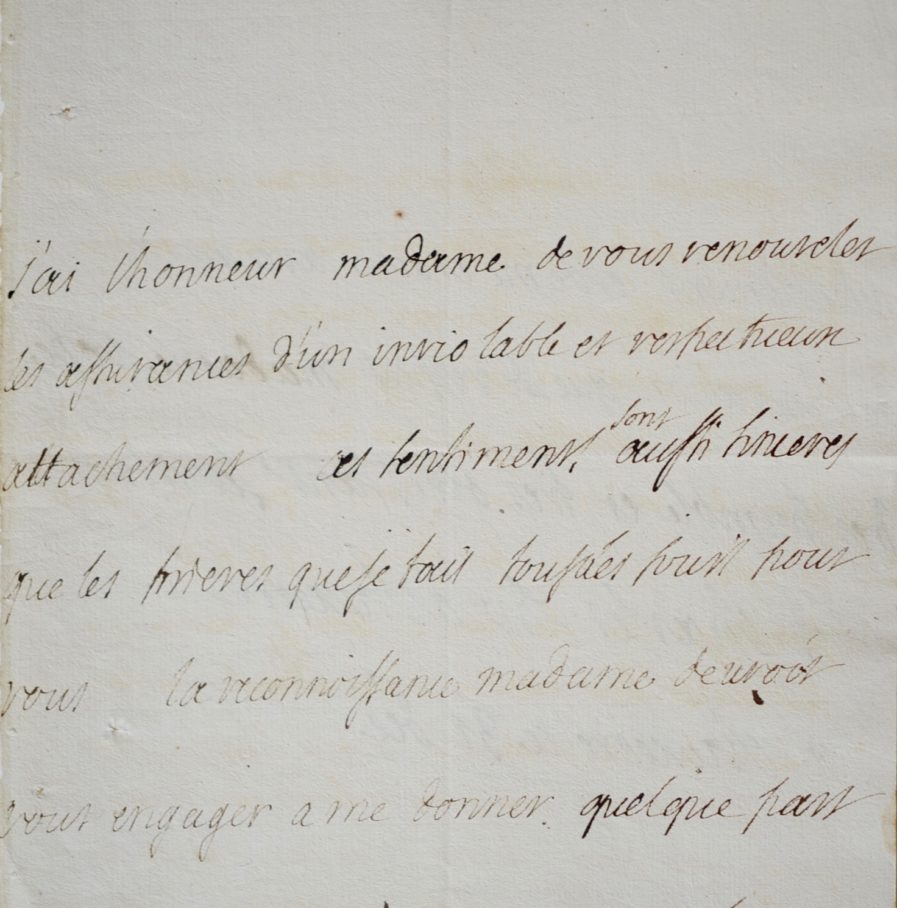 j'ai l'honneur madame de vous renouveler
les assurances d'un inviolable et respectueux
attachement ces sentiments, sont aussi sinceres
que les prieres que je fais tous les jours pour
vous la reconnoissance madame devroit
vous engager a me donner quelque part